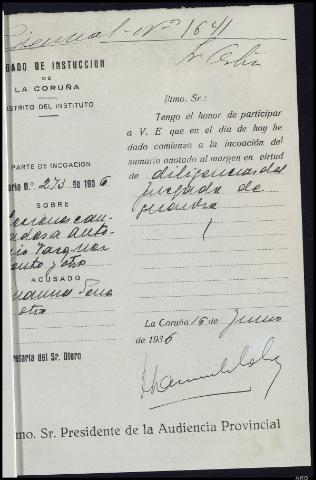 Nº 1641
GADO DE INSTUCCION
DE
LA CORUÑA
ISTRITO DEL INSTITUTO
PARTE DE INCOACION
ario N.º 273 de 1936
SOBRE
Lesiones cau-
sadas a Anto-
nio
y otro
ACUSADO
Pena
otro
retaría del Sr. Otero
Iltmo. Sr.:
Tengo el honor de participar
a V. E que en el día de hoy he
dado comienzo a la incoación del
sumario anotado al margen en virtud
de diligencias del
juzgado de
guardia
La Coruña 15 de Junio
de 1936
mo. Sr. Presidente de la Audiencia Provincial